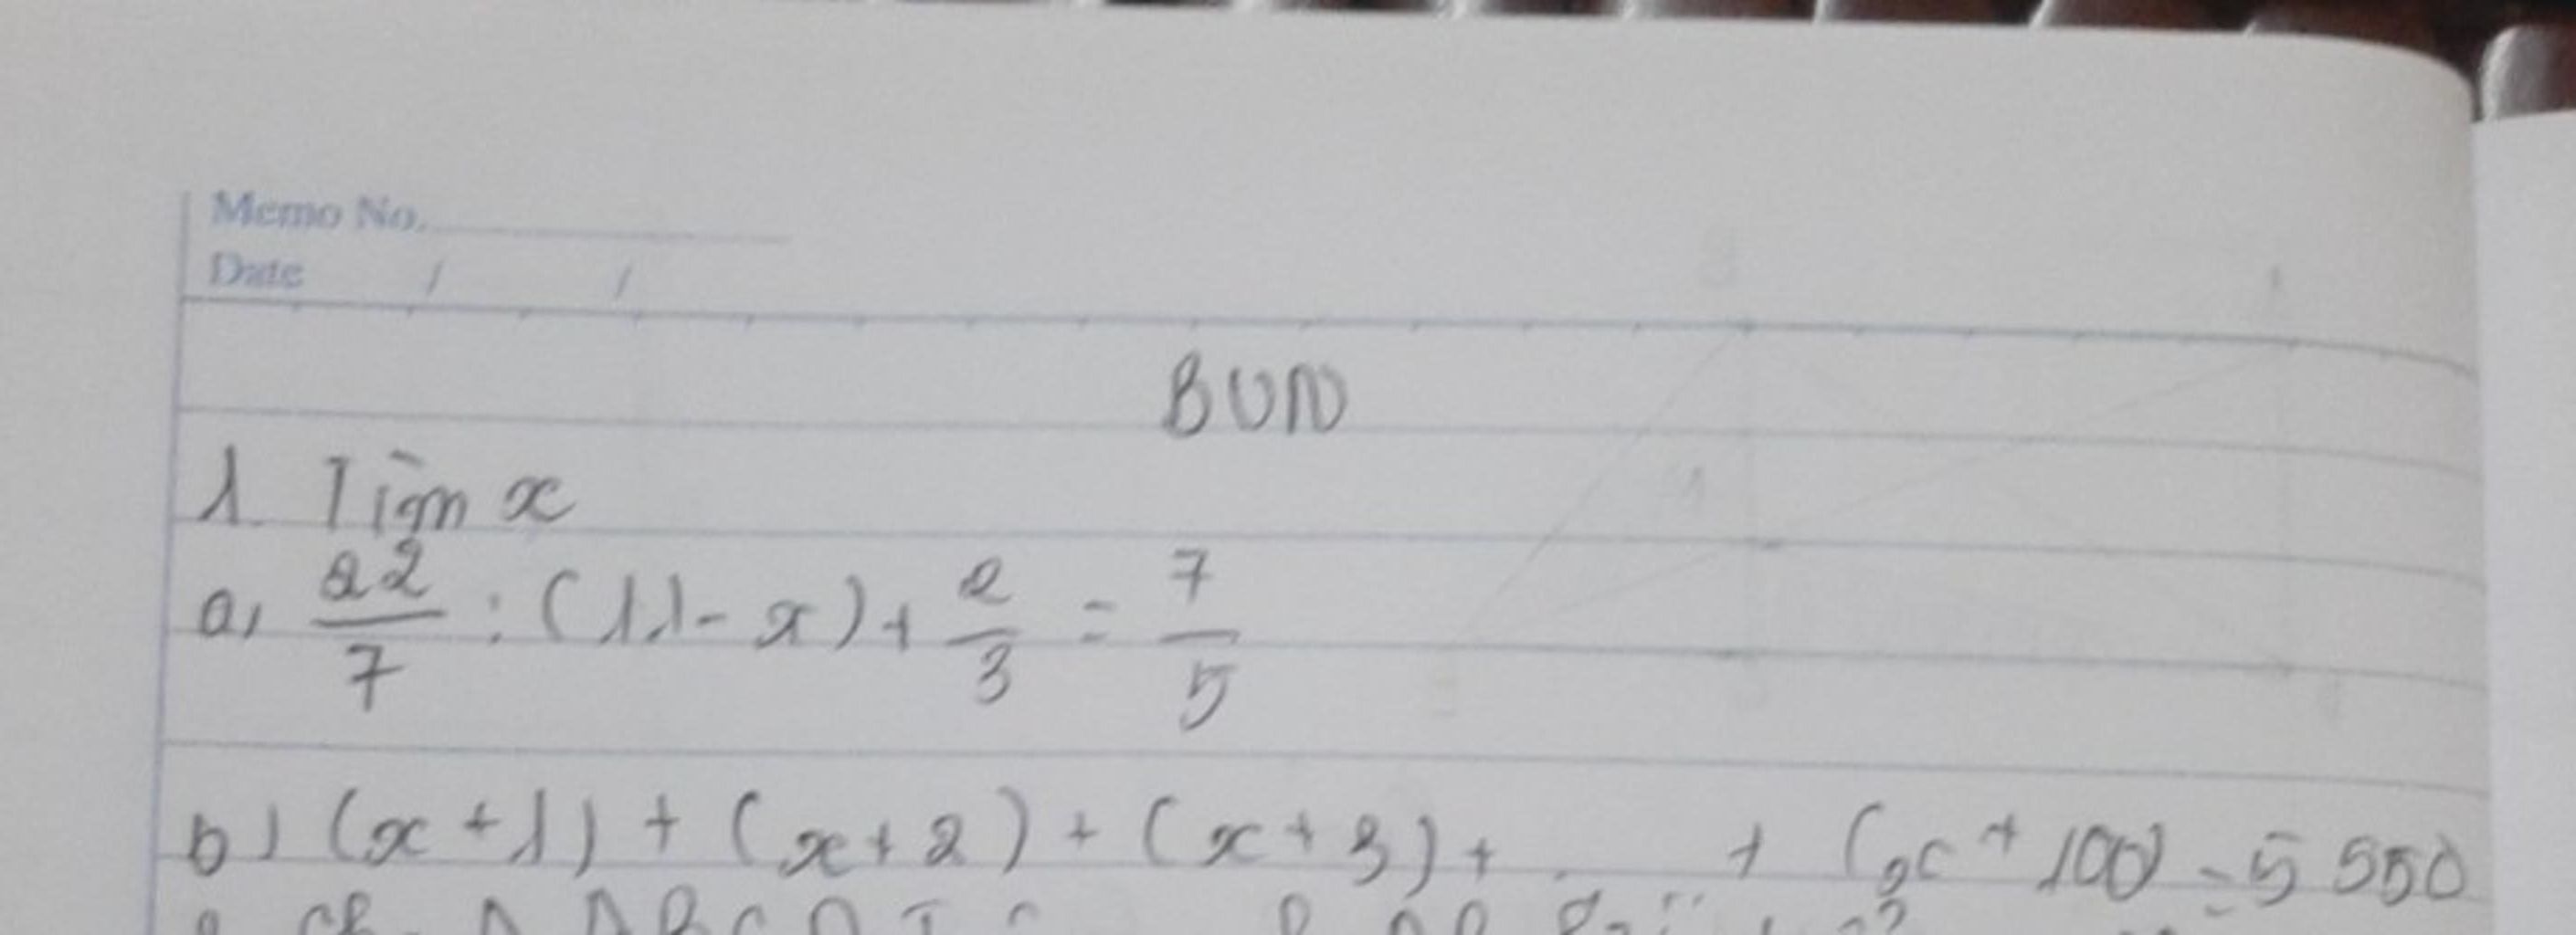 Memo No.
Date / /
BUN
1. Tìm x
a, 22/7 : (11 - x) + 2/3 = 7/5
b) (x + 1) + (x + 2) + (x + 3) + ... + (x + 100) = 5 550